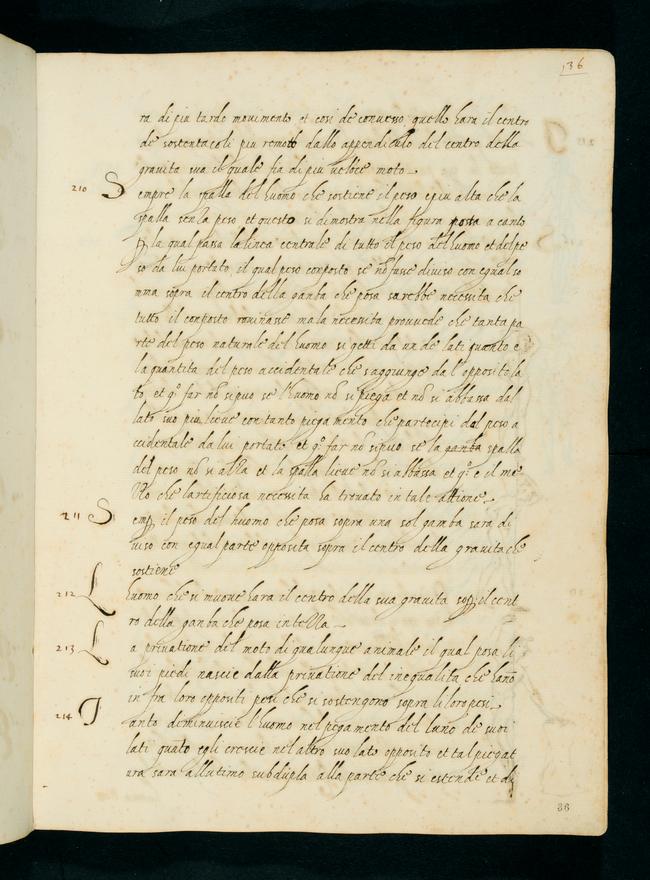 136
ra di piu tardo movimento et cosi de converso quello hara il centro
de sostentacoli piu remoto dallo appendiculo del centro della
gravita sua il quale fia di piu veloce moto
210 Sempre la spalla del huomo che sostiene il peso e piu alta che la
spalla senza peso et questo si dimostra nella figura posta a canto
p la qual passa la linea centrale di tutto il peso del huomo et del pe
so da lui portato, il qual peso composto se nō fusse diviso con equal so
mma sopra il centro della gamba che posa sarebbe necessita che
tutto il composto rovinasse ma la necessita provvede che tanta pa
rte del peso naturale del huomo si getti da un de lati quanto e
la quantita del peso accidentale che s'aggiunge dal opposito la
to, et q.o far nō si puo se l'huomo nō si piega et nō si abbassa dal
lato suo piu lieve con tanto piegamento che partecipi del peso a
ccidentale da lui portato et q.o far nō si puo se la gamba spalla
del peso nō si alza et la spalla lieve nō si abbassa et q.o e il me
zzo che l'artificiosa necessita ha trovato in tale attione
211 Semp il peso del huomo che posa sopra una sol gamba sera di
viso con equal parte opposita sopra il centro della gravita che
sostiene
212 Lhuomo che si muove hara il centro della sua gravita sop il cent
ro della gamba che posa in terra
213 La privatione del moto di qualunque animale il qual posa li
suoi piedi nascie dalla privatione del inequalita che hāno
in fra loro oppositi pesi che si sostengono sopra li loro pesi
214 Tanto diminuiscie l'huomo nel piegamento del luno de suoi
lati quāto egli crescie nel altro suo lato opposito et tal piegat
ura sara all utimo subdupla alla parte che si estende et di
86